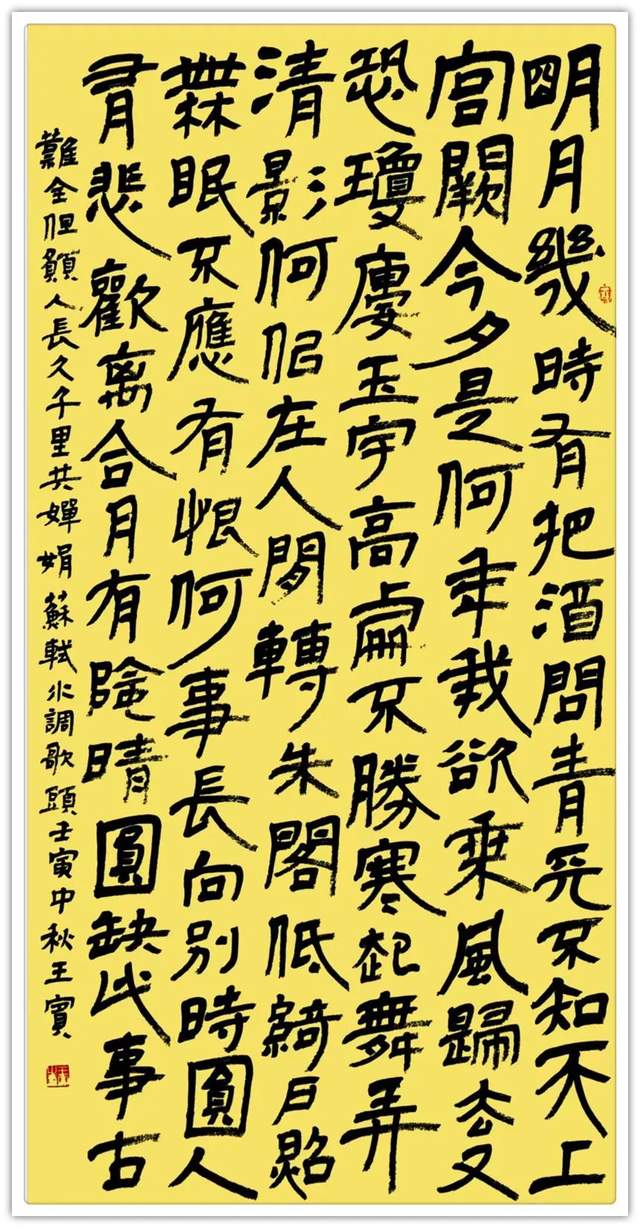 明月幾時有把酒問青天不知天上
宮闕今夕是何年我欲乘風歸去又
恐瓊廔玉宇高處不勝寒起舞弄
清影何佀在人間轉朱閣低綺戶照
無眠不應有恨何事長向別時圓人
有悲歡离合月有陰晴圓缺此事古
難全但願人長久千里共嬋娟 蘇軾水調歌頭壬寅中秋王賓